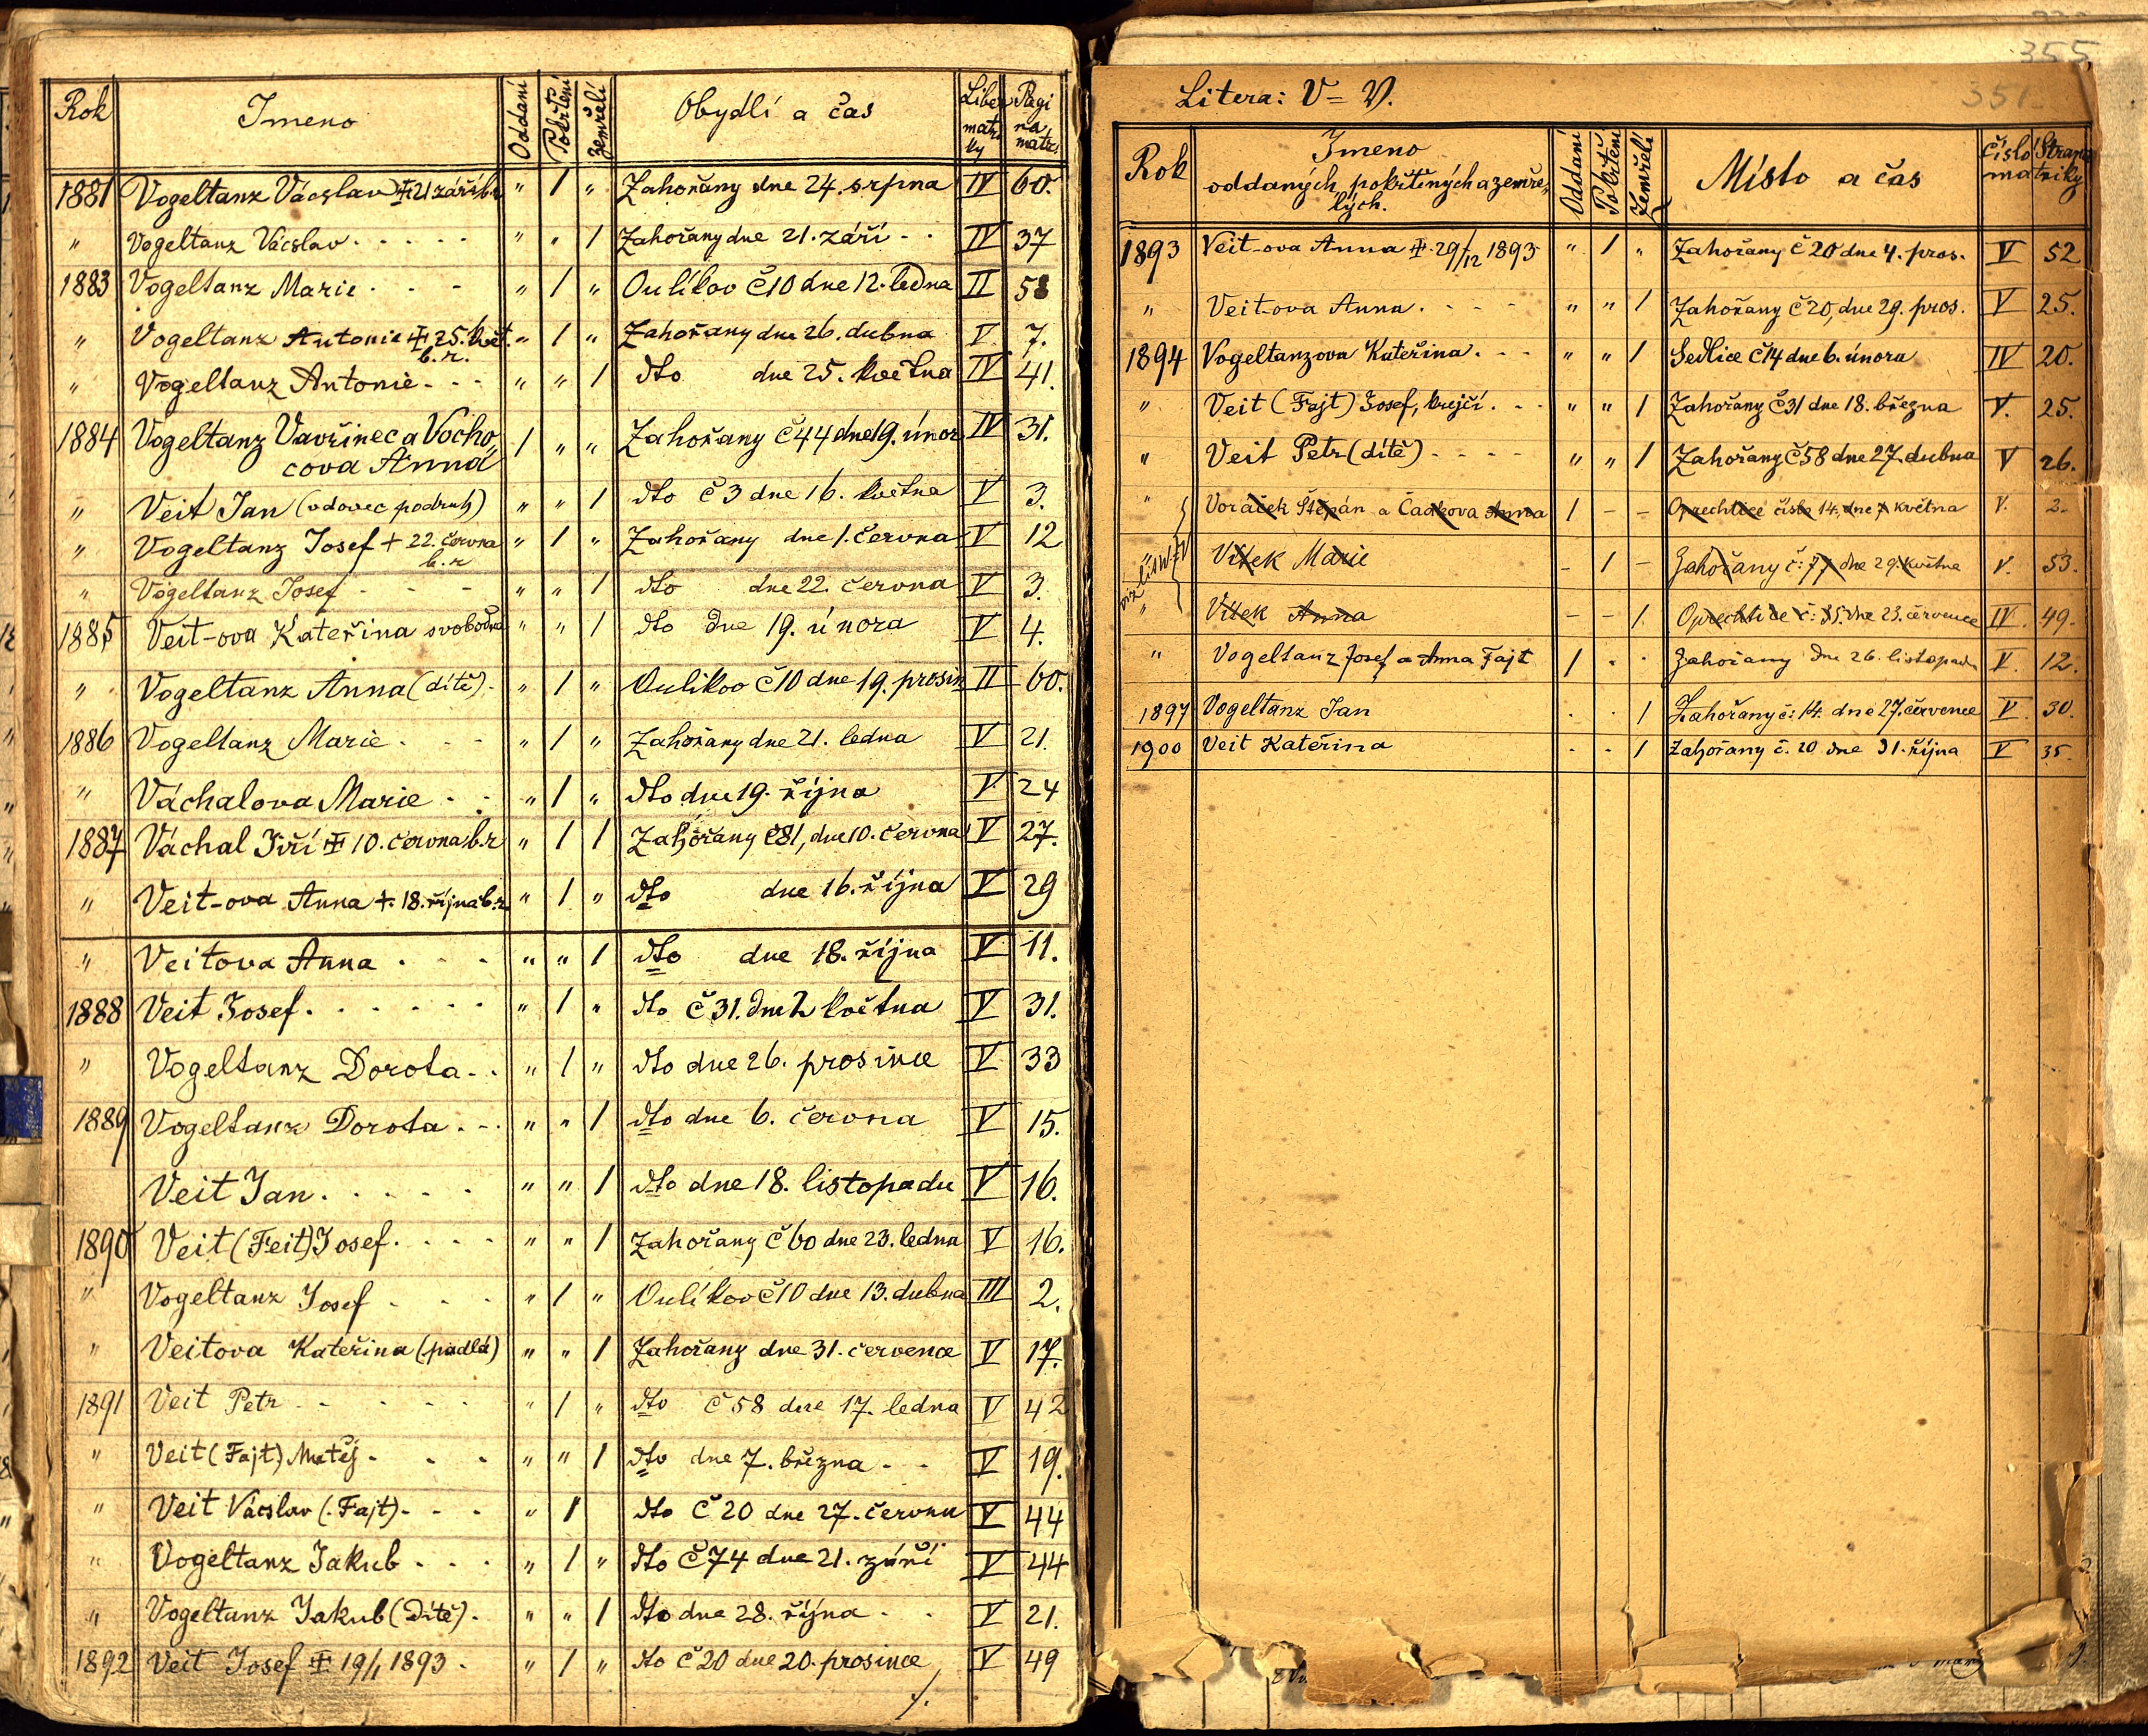 Rok Jmeno Oddaní Pokřtění Zemřelí Obydlí a čas Liber matriky Pagina matr.
1881 Vogeltanz Václav ‡ 21 září b.r. " 1 " Zahořany dne 24. srpna IV 60.
" Vogeltanz Václav . . . . . " " 1 Zahořany dne 21. září . . IV 37
1883 Vogeltanz Marie . . - " 1 " Oulíkov č 10 dne 12. ledna II 58
" Vogeltanz Antonie ‡ 25. Květ. b.r. " 1 " Zahořany dne 26. dubna V 7.
" Vogeltanz Antonie . . . " " 1 dto dne 25. května IV 41.
1884 Vogeltanz Vavřinec a Vocho
cova Anna 1 " " Zahořany č 44 dne 19. únor IV 31.
" Veit Jan (vdovec podruh) " " 1 dto č 3 dne 16. května V 3.
" Vogeltanz Josef + 22. června b.r " 1 " Zahořany dne 1. června V 12
" Vogeltanz Josef - - - " " 1 dto dne 22. června V 3.
1885 Veit-ova Kateřina svobodná " " 1 dto dne 19. února V 4.
" Vogeltanz Anna (dítě) . " 1 " Oulikov č 10 dne 19. prosin II 60.
1886 Vogeltanz Marie . - - " 1 " Zahořany dne 21. ledna V 21.
" Váchalova Marie . . " 1 " dto dne 19. října V 24
1887 Váchal Jiří ‡ 10. června b.r " 1 1 Zahořany č 81, dne 10. června V 27.
" Veit-ova Anna + 18. října b.r. " 1 " dto dne 16. října V 29
" Veitova Anna . . . " " 1 dto dne 18. října V 11.
1888 Veit Josef . . . . . . " 1 " dto č 31. dne 2 května V 31.
" Vogeltanz Dorota . . " 1 " dto dne 26. prosince V 33
1889 Vogeltanz Dorota . . . " " 1 dto dne 6. června V 15.
Veit Jan . . . . . " " 1 dto dne 18. listopadu V 16.
1890 Veit (Feit) Josef . . . . " " 1 Zahořany č 60 dne 23. ledna V 16.
" Vogeltanz Josef . . . " 1 " Oulíkov č 10 dne 13. dubna III 2.
" Veitova Kateřina (padlá) " " 1 Zahořany dne 31. července V 17.
1891 Veit Petr . . . . . " 1 " dto č 58 dne 17. ledna V 42
" Veit (Fajt) Matěj . . . . " " 1 dto dne 7. března . . V 19.
" Veit Václav (Fajt) . . . " 1 dto č 20 dne 27. června V 44
" Vogeltanz Jakub . . . " 1 " dto č 74 dne 21. září V 44
" Vogeltanz Jakub (dítě) . " " 1 dto dne 28. října . . V 21.
1892 Veit Josef ‡ 19/1 1893 . " 1 " dto č 20 dne 20. prosince V 49
355
351
Litera: V = V.
Rok Jmeno
oddaných, pokřtěných a zemře-
lých. Oddaní Pokřtění Zemřelí Místo a čas číslo Strana
matriky
1893 Veit-ova Anna ‡ 29/12 1893 " 1 " Zahořany č 20 dne 4. pros. V 52
" Veit-ova Anna . - - - " " 1 Zahořany č 20, dne 29. pros. V 25.
1894 Vogeltanzova Kateřina . - - " " 1 Sedlice č 14 dne 6. února IV 20.
" Veit (Fajt) Josef, krejčí . - - " " 1 Zahořany č 31 dne 18. března V. 25.
" Veit Petr (dítě) - - - - " " 1 Zahořany č 58 dne 27. dubna V 26.
" Voráček Štěpán a Čadkova Anna 1 - - Oprechtice číslo 14, dne 7 května V. 2.
" Vítek Marie - 1 - Zahořany č: 77 dne 29. května V. 53.
" Vítek Anna - - 1. Oprechtice č: 35. dne 23. července IV. 49.
" Vogeltanz Josef a Anna Fajt 1 . . Zahořany dne 26. listopadu V. 12.
1897 Vogeltanz Jan . . 1 Zahořany č: 14. dne 27. července V. 30.
1900 Veit Kateřina . . 1 Zahořany č. 20 dne 31. října V 35.